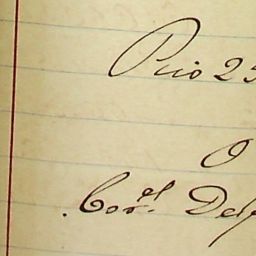 Rio 25
O
Cor.el Delf